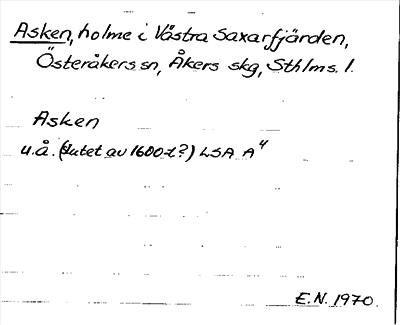 Asken, holme i Västra Saxarfjärden,
Österåkers sn, Åkers skg, Sthlms. l.
Asken
u.å. (slutet av 1600-t?) LSA A⁴
E.N. 1970.